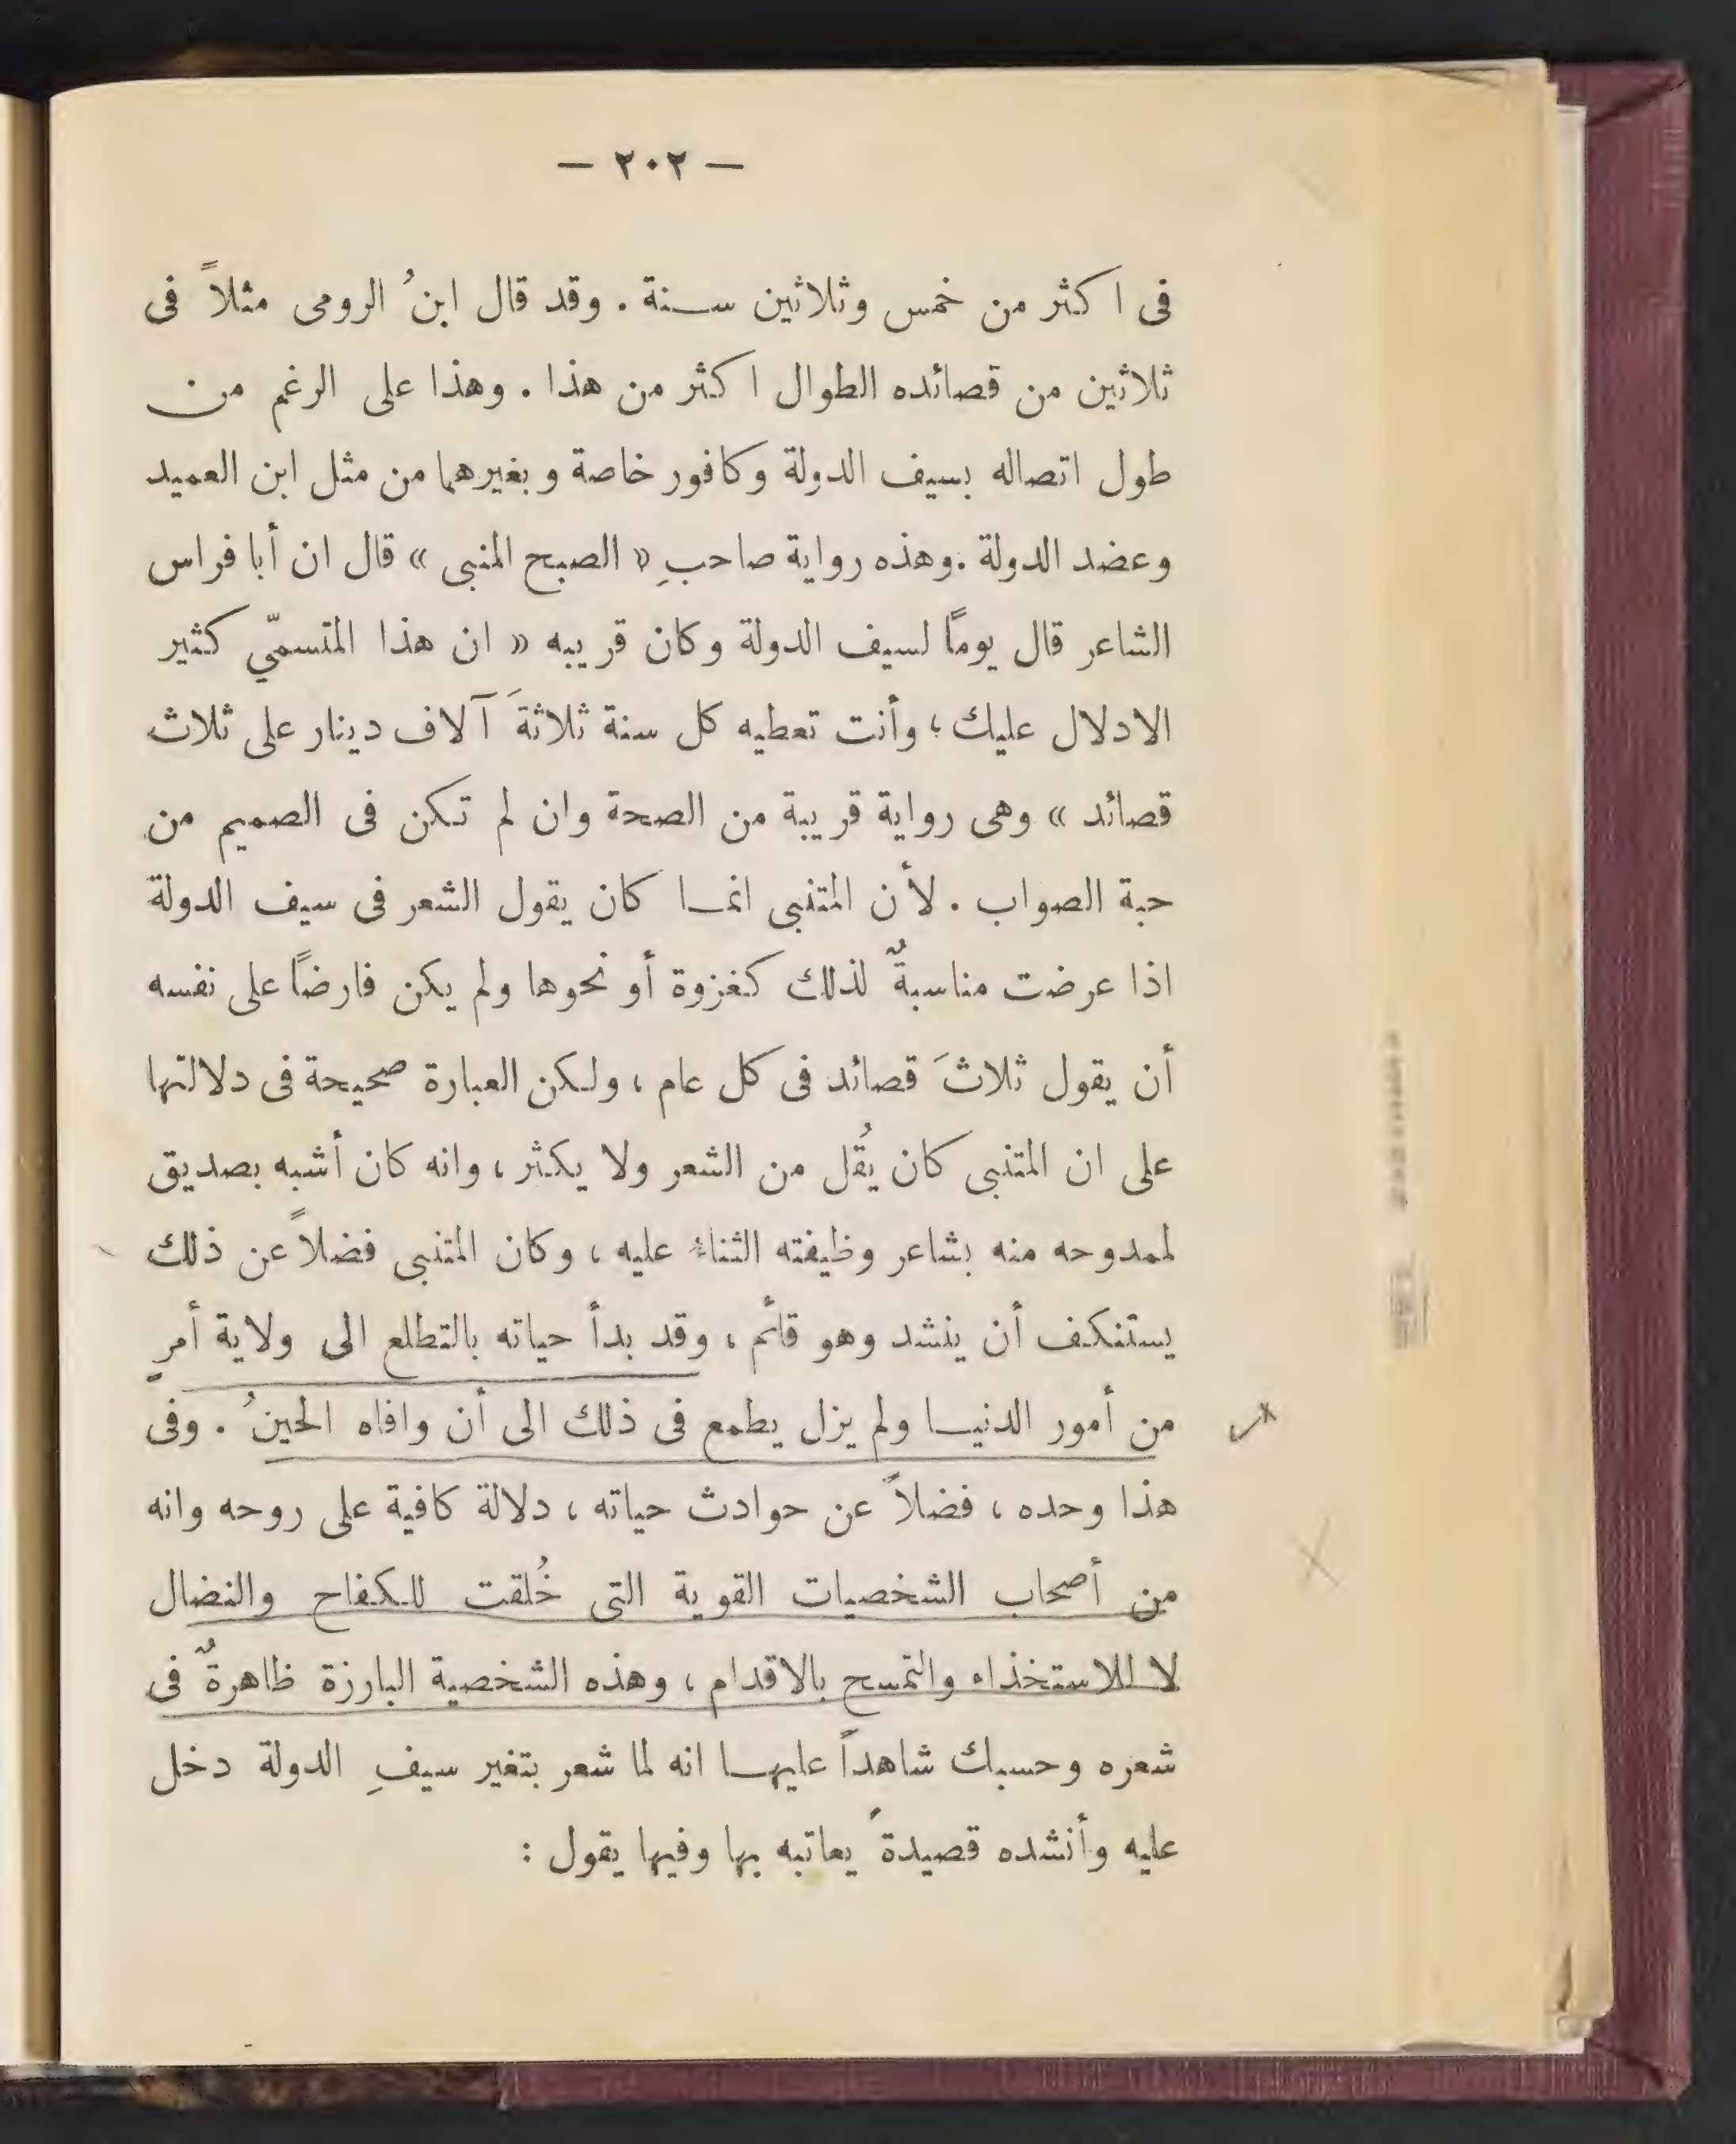 — ٢٠٢ —
فى اكثر من خمس وثلاثين سنة . وقد قال ابنُ الرومى مثلاً فى
ثلاثين من قصائده الطوال اكثر من هذا . وهذا على الرغم من
طول اتصاله بسيف الدولة وكافور خاصة وبغيرهما من مثل ابن العميد
وعضد الدولة . وهذه رواية صاحبِ « الصبح المنبى » قال ان أبا فراس
الشاعر قال يوماً لسيف الدولة وكان قريبه « ان هذا المتسمّي كثير
الادلال عليك ؛ وأنت تعطيه كل سنة ثلاثةَ آلاف دينار على ثلاث
قصائد » وهى رواية قريبة من الصحة وان لم تكن فى الصميم من
حبة الصواب . لأن المتنبى انما كان يقول الشعر فى سيف الدولة
اذا عرضت مناسبةٌ لذلك كغزوة أو نحوها ولم يكن فارضاً على نفسه
أن يقول ثلاثَ قصائد فى كل عام ، ولكن العبارة صحيحة فى دلالتها
على ان المتنبى كان يُقل من الشعر ولا يكثر ، وانه كان أشبه بصديق
لممدوحه منه بشاعر وظيفته الثناء عليه ، وكان المتنبى فضلاً عن ذلك
يستنكف أن ينشد وهو قائم ، وقد بدأ حياته بالتطلع الى ولاية أمرٍ
من أمور الدنيا ولم يزل يطمع فى ذلك الى أن وافاه الحينُ . وفى
هذا وحده ، فضلاً عن حوادث حياته ، دلالة كافية على روحه وانه
من أصحاب الشخصيات القوية التى خُلقت للكفاح والنضال
لا للاستخذاء والتمسح بالاقدام ، وهذه الشخصية البارزة ظاهرةٌ فى
شعره وحسبك شاهداً عليها انه لما شعر بتغير سيفِ الدولة دخل
عليه وأنشده قصيدةً يعاتبه بها وفيها يقول :